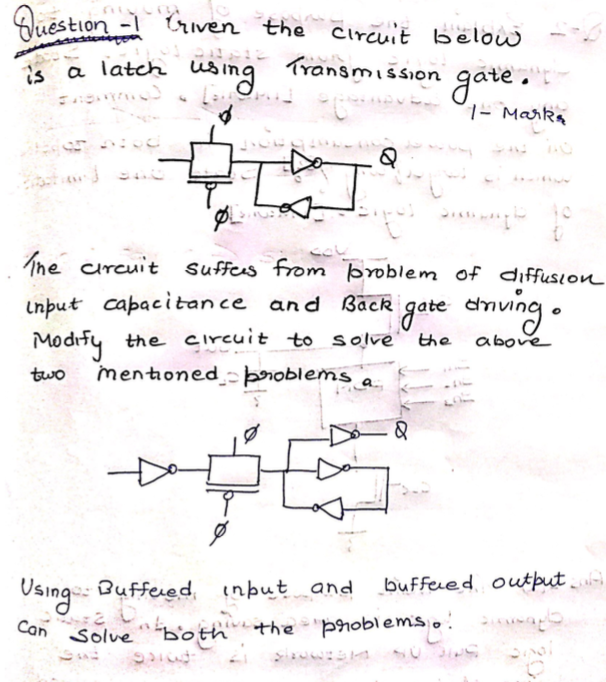 Question -1 Given the circuit below
is a latch using Transmission gate.
1- Marks
ϕ
Q
ϕ
The circuit suffers from problem of diffusion
input capacitance and Back gate driving.
Modify the circuit to solve the above
two mentioned problems.
ϕ
Q
ϕ
Using Buffered input and buffered output
Can solve both the problems.